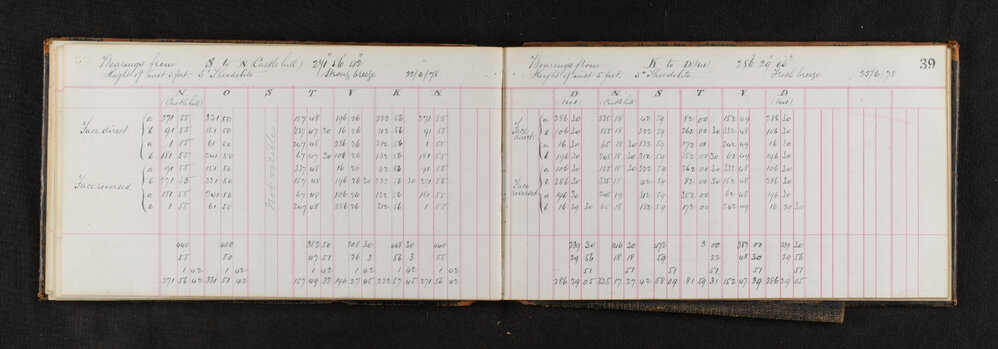 Bearings from S to N (Castle hill) 271° 56' 42"
Height of inst 5 feet. 5" Theodolite Strong breeze 22/6/78
N O S T V K N
(Castle hill)
Face direct { a 271 55 331 50 157 48 196 26 222 56 271 55
b 91 55 151 50 337 47 30 16 26 42 56 91 55
a 1 55 61 50 247 48 286 26 312 56 1 55
b 181 55 241 50 67 47 30 106 26 132 56 181 55
Face reversed { a 91 55 151 50 337 48 16 26 42 56 91 55
b 271 55 331 50 157 48 196 26 30 222 56 30 271 55
a 181 55 241 50 67 48 106 26 132 56 181 55
b 1 55 61 50 247 48 286 26 312 56 1 55
Not visible
440 400 382 50 208 30 448 30 440
55 50 47 51 26 3 56 3 55
1 42 1 42 1 42 1 42 1 42 1 42
271 56 42 331 51 42 157 49 33 196 27 45 222 57 45 271 56 42
39
Bearings from K to D (Hut) 286° 29' 05"
Height of inst 5 feet. 5" Theodolite Fresh breeze 25/6/78
D N S T V D
(Hut) (Castle hill) (Hut)
Face direct { a 286 30 335 18 42 59 82 00 152 49 286 30
b 106 30 155 18 222 59 262 00 30 332 48 106 30
a 16 30 65 18 30 132 59 172 01 242 49 16 30
b 196 30 245 18 30 312 59 352 00 30 62 49 196 30
Face reversed { a 106 30 155 18 30 222 59 262 00 30 332 48 106 30
b 286 30 335 18 42 59 82 00 30 152 48 286 30
a 196 30 245 19 312 59 352 00 62 48 196 30
b 16 29 30 65 18 132 59 172 00 242 49 16 29 30
239 30 146 30 472 3 00 387 00 239 30
29 56 18 18 59 22 48 30 29 56
51 51 51 51 51 51
286 29 05 335 17 27 42 58 09 81 59 31 152 47 39 286 29 05